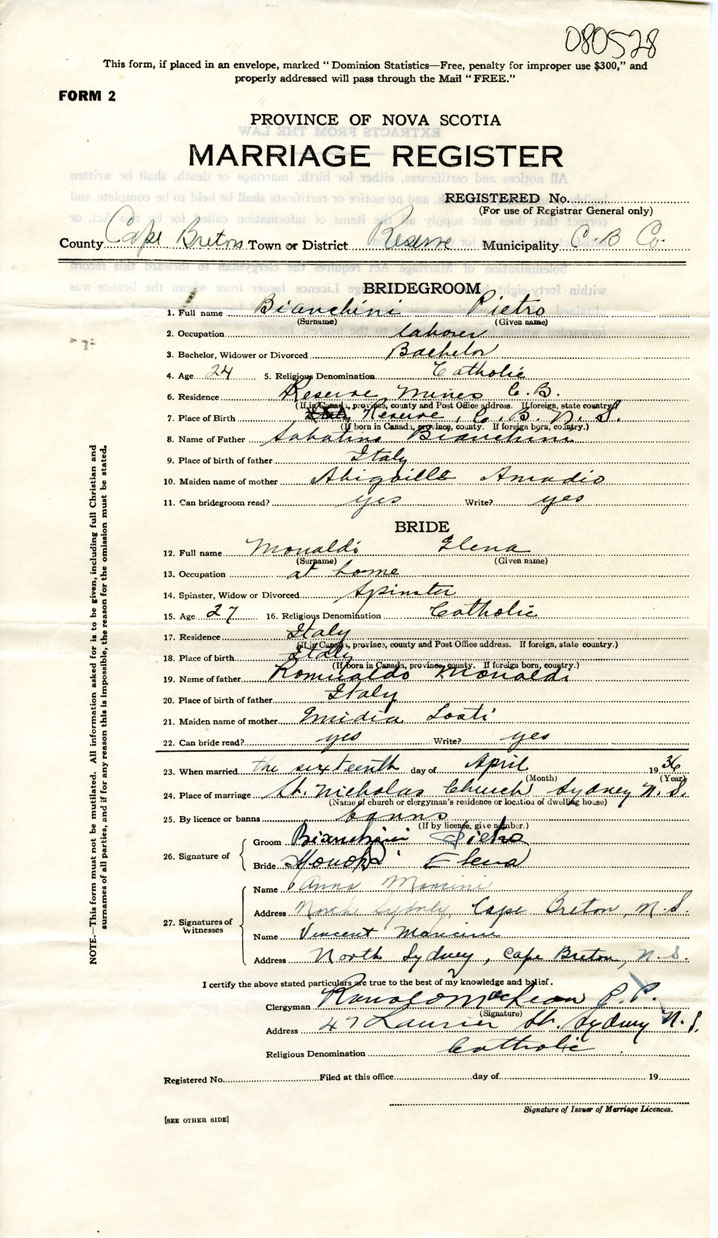 080528
This form, if placed in an envelope, marked "Dominion Statistics—Free, penalty for improper use $300," and
properly addressed will pass through the Mail "FREE."
FORM 2
PROVINCE OF NOVA SCOTIA
MARRIAGE REGISTER
REGISTERED No.
(For use of Registrar General only)
County Cape Breton Town or District Reserve Municipality C. B Co.
BRIDEGROOM
1. Full name Bianchini Pietro
(Surname) (Given name)
2. Occupation laborer
3. Bachelor, Widower or Divorced Bachelor
4. Age 24 5. Religious Denomination Catholic
6. Residence Reserve Mines C.B.
(If in Canada, province, county and Post Office address. If foreign, state country)
7. Place of Birth Reserve, C. B. N. S.
(If born in Canada, province, county. If foreign born, country.)
8. Name of Father Sabatino Bianchini
9. Place of birth of father Italy
10. Maiden name of mother Amadio
11. Can bridegroom read? yes Write? yes
BRIDE
12. Full name Monaldi Elena
(Surname) (Given name)
13. Occupation at home
14. Spinster, Widow or Divorced Spinster
15. Age 27 16. Religious Denomination Catholic
17. Residence Italy
(If in Canada, province, county and Post Office address. If foreign, state country.)
18. Place of birth Italy
(If born in Canada, province, county. If foreign born, country.)
19. Name of father Romualdo Monaldi
20. Place of birth of father Italy
21. Maiden name of mother
22. Can bride read? yes Write? yes
23. When married the sixteenth day of April 1936
(Month) (Year)
24. Place of marriage St. Nicholas Church Sydney N. S.
(Name of church or clergyman's residence or location of dwelling house)
25. By licence or banns banns
(If by licence, give number.)
26. Signature of
Groom Bianchini Pietro
Bride Elena
27. Signatures of Witnesses
Name Anna Mancini
Address North Sydney, Cape Breton, N.S.
Name Vincent Mancini
Address North Sydney, Cape Breton, N.S.
I certify the above stated particulars are true to the best of my knowledge and belief.
Clergyman Ronald MacLean P.P.
(Signature)
Address 47 Laurier St. Sydney N.S.
Religious Denomination Catholic
Registered No. Filed at this office day of 19
Signature of Issuer of Marriage Licences.
[SEE OTHER SIDE]
NOTE.—This form must not be mutilated. All information asked for is to be given, including full Christian and
surnames of all parties, and if for any reason this is impossible, the reason for the omission must be stated.